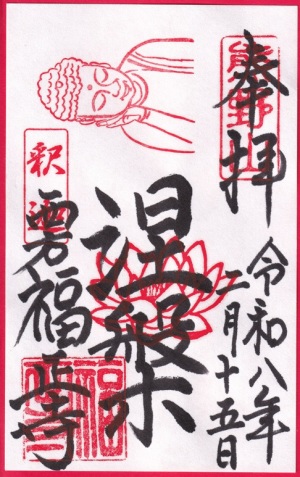 熊野山
奉拝
令和八年
二月十五日
涅槃
釈迦
福正寺